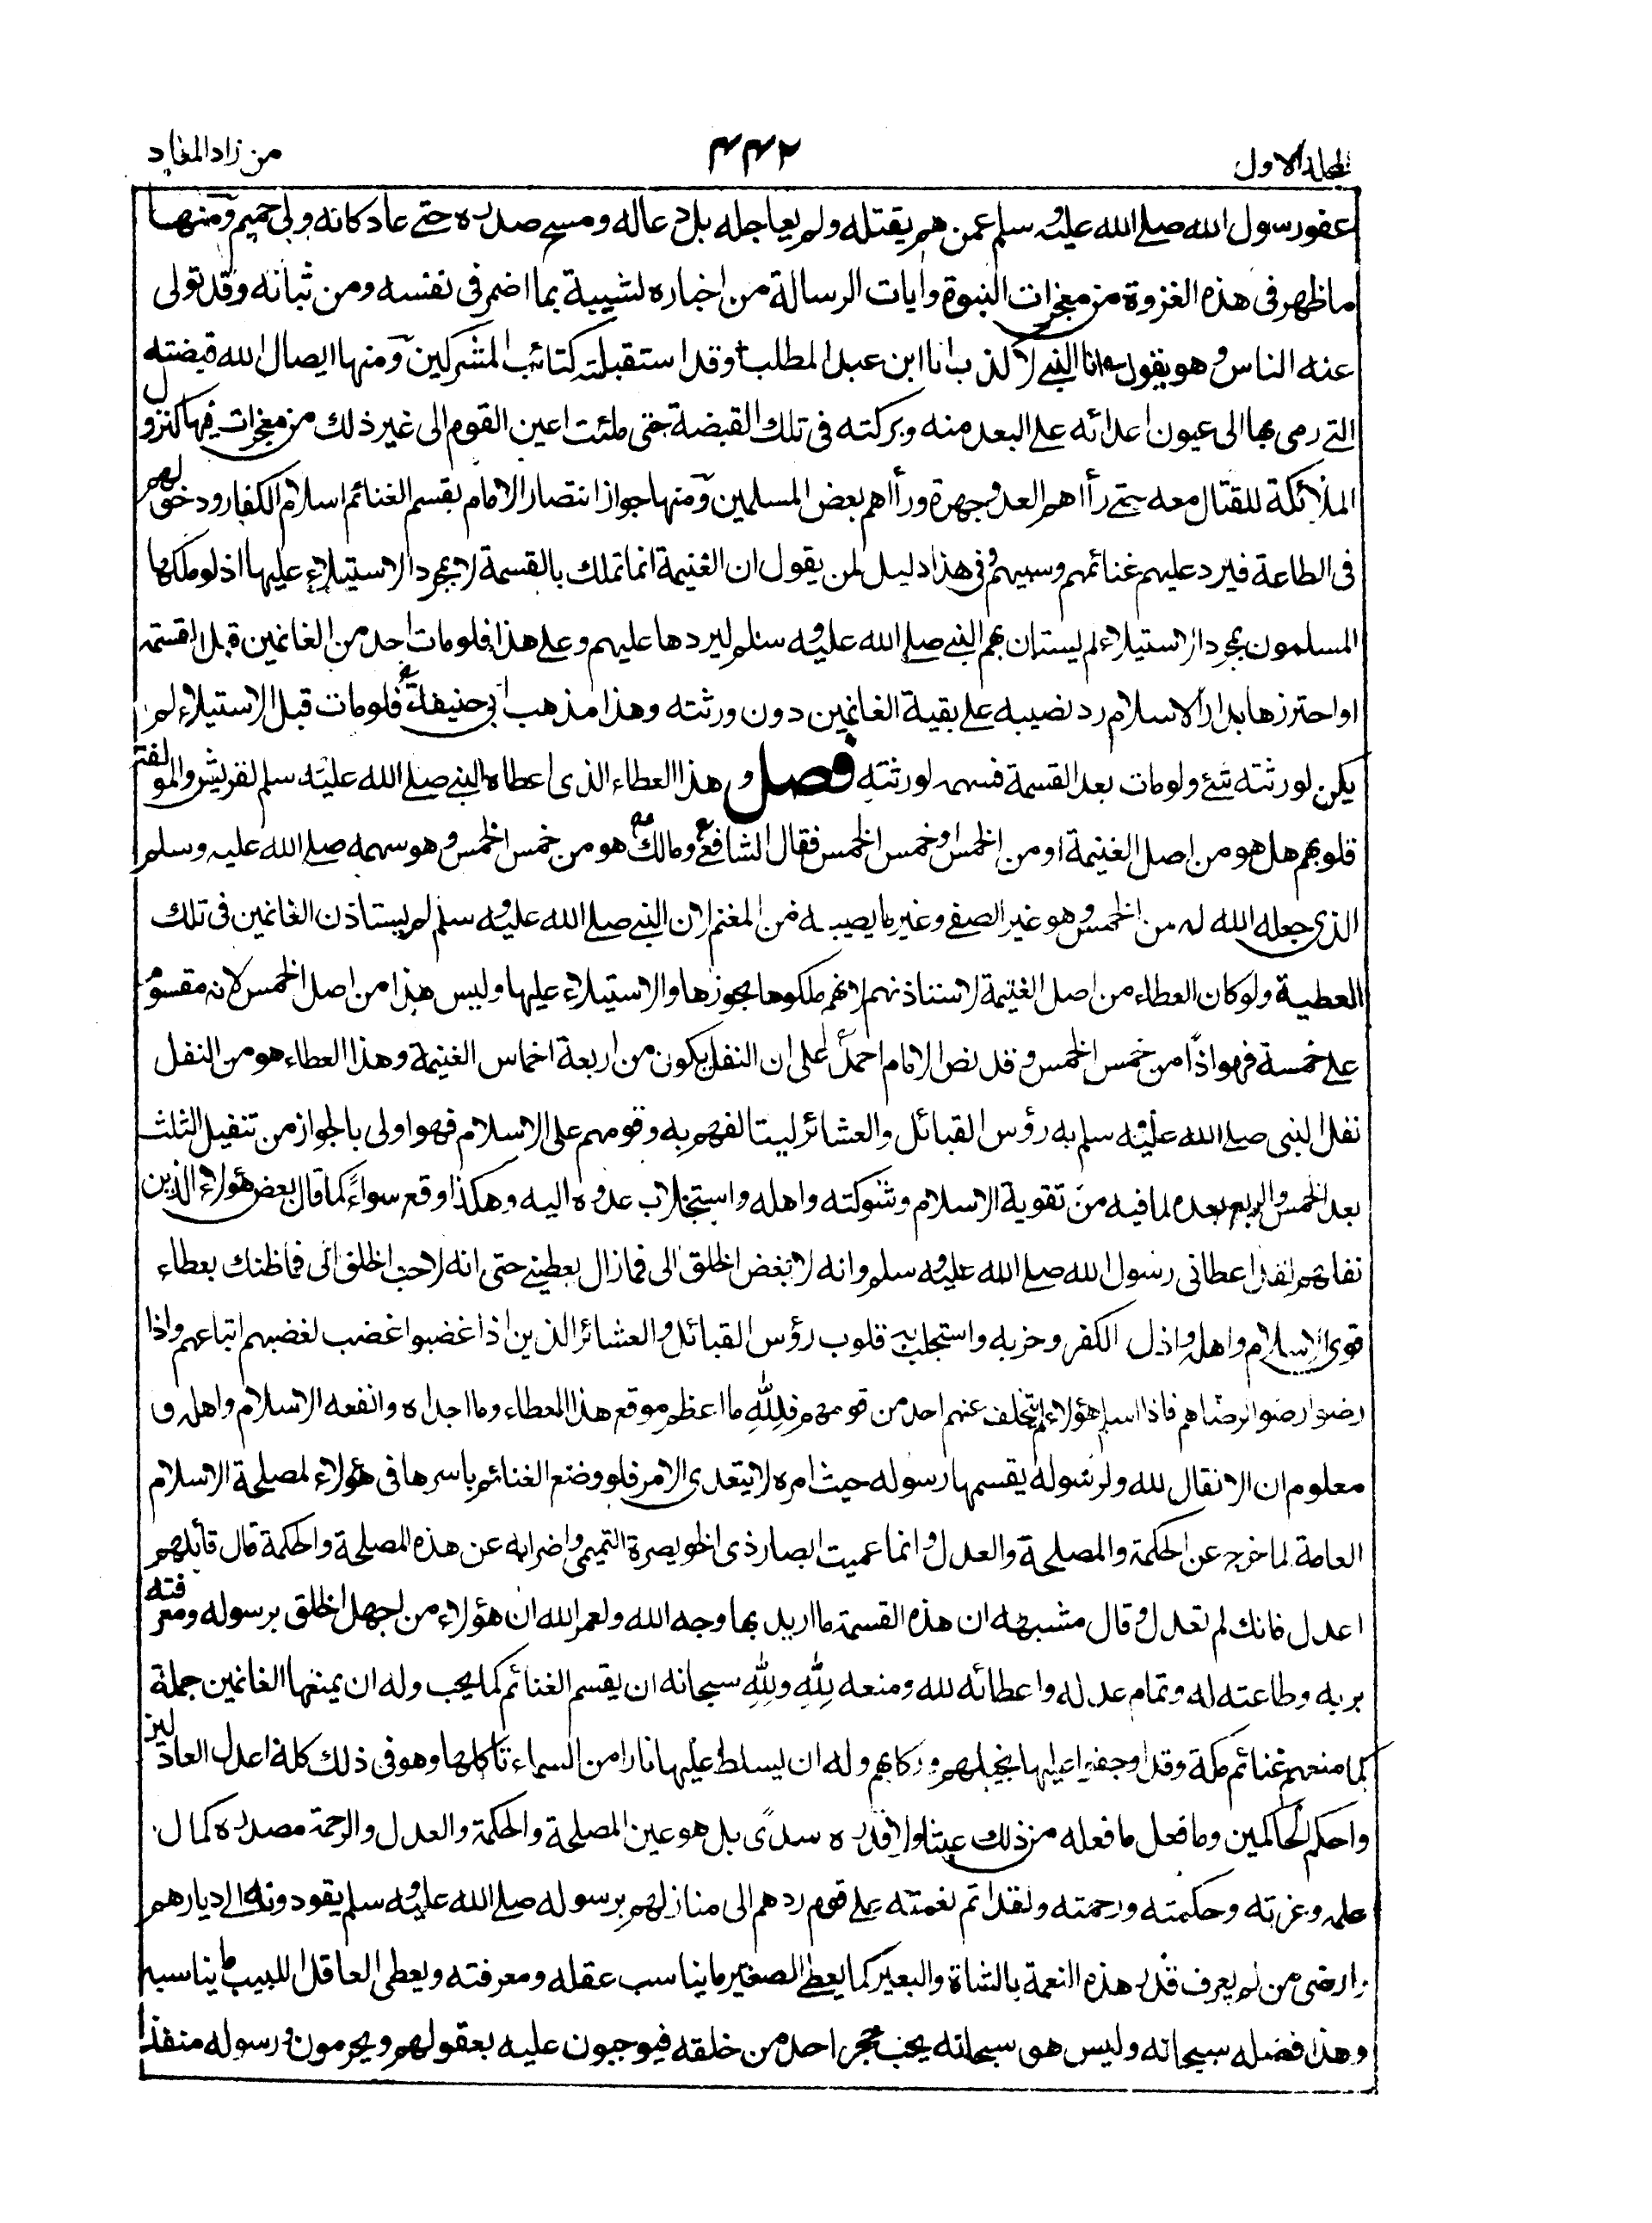 المجلد الاول
٤٤٢
من زاد المعاد
عفو رسول الله صلے الله عليه وسلم عمن هم بقتله ولم يعاجله بل دعا له ومسح صدره حتے عاد كانه ولي حميم ومنها
ما ظهر فى هذه الغزوة من معجزات النبوة وايات الرسالة من اخباره لشيبة بما اضمر فى نفسه ومن ثباته وقد تولى
عنه الناس وهو يقول انا النبے لا كذب انا ابن عبد المطلب وقد استقبلته كتائب المشركين ومنها ايصال الله قبضته
التے رمى بها الى عيون اعدائه علے البعد منه وبركته فى تلك القبضة حتى ملئت اعين القوم الى غير ذلك من معجزات فيها كنزول
الملائكة للقتال معه حتے رأاهم العدو جهرة ورأاهم بعض المسلمين ومنها جواز انتظار الامام بقسم الغنائم اسلام الكفار ودخولهم
فى الطاعة فيرد عليهم غنائمهم وسبيهم وفى هذا دليل لمن يقول ان الغنيمة انما تملك بالقسمة لا بمجرد الاستيلاء عليها اذ لو ملكها
المسلمون بمجرد الاستيلاء لم يستان بهم النبے صلے الله عليه وسلم ليردها عليهم وعلے هذا فلو مات احد من الغانمين قبل القسمة
او احترزها بدار الاسلام رد نصيبه علے بقية الغانمين دون ورثته وهذا مذهب ابى حنيفة فلو مات قبل الاستيلاء لم
يكن لورثته شئ ولو مات بعد القسمة فسهمه لورثته فصل وهذا العطاء الذى اعطاه النبے صلے الله عليه وسلم لقريش والمولفة
قلوبهم هل هو من اصل الغنيمة او من الخمس او خمس الخمس فقال الشافعے ومالك هو من خمس الخمس وهو سهمه صلے الله عليه وسلم
الذى جعله الله له من الخمس وهو غير الصفے وغير ما يصيبه من المغنم لان النبے صلے الله عليه وسلم لم يستاذن الغانمين فى تلك
العطية ولو كان العطاء من اصل الغنيمة لاستاذنهم لانهم ملكوها بحوزها والاستيلاء عليها وليس هذا من اصل الخمس لانه مقسوم
علے خمسة فهو اذًا من خمس الخمس وقد نص الامام احمد على ان النفل يكون من اربعة اخماس الغنيمة وهذا العطاء هو من النفل
نفل النبى صلے الله عليه وسلم به رؤس القبائل والعشائر ليتالفهم به وقومهم على الاسلام فهو اولى بالجواز من تنفيل الثلث
بعد الخمس والربع بعده لما فيه من تقوية الاسلام وشوكته واهله واستجلاب عدوه اليه وهكذا وقع سواءً كما قال بعض هؤلاء الذين
نفلهم لقد اعطانى رسول الله صلے الله عليه وسلم وانه لا بغض الخلق الى فما زال يعطينے حتى انه لاحب الخلق الى فما ظنك بعطاء
قوى الاسلام واهله واذل الكفر وحزبه واستجلب به قلوب رؤس القبائل والعشائر الذين اذا غضبوا غضب لغضبهم اتباعهم واذا
رضوا رضوا لرضاهم فاذا اسلم هؤلاء لم يتخلف عنهم احد من قومهم فلِلّٰهِ ما اعظم موقع هذا العطاء وما اجداه وانفعه الاسلام واهله و
معلوم ان الانفال لله ولرسوله يقسمها رسوله حيث امره لا يتعدى الامر فلو وضع الغنائم باسرها فى هؤلاء لمصلحة الاسلام
العامة لما خرج عن الحكمة والمصلحة والعدل وانما عميت ابصار ذى الخويصرة التميمى واضرابه عن هذه المصلحة والحكمة قال قائلهم
اعدل فانك لم تعدل وقال مشبهه ان هذه القسمة ما اريد بها وجه الله ولعمر الله ان هؤلاء من اجهل الخلق برسوله ومعرفته
بربه وطاعته له وتمام عدله واعطائه لله ومنعه لِلّٰهِ ولِلّٰهِ سبحانه ان يقسم الغنائم كما يحب وله ان يمنعها الغانمين جملة
كما منعهم غنائم مكة وقد اوجفوا عليها بخيلهم وركابهم وله ان يسلط عليها نارا من السماء تاكلها وهو فى ذلك كله اعدل العادلين
واحكم الحاكمين وما فعل ما فعله من ذلك عبثا ولا قدره سدًى بل هو عين المصلحة والحكمة والعدل والرحمة مصدره كمال
علمه وعزته وحكمته ورحمته ولقد اتم نعمته علے قوم ردهم الى منازلهم برسوله صلے الله عليه وسلم يقودونه الے ديارهم
وارضى من لم يعرف قدر هذه النعمة بالشاة والبعير كما يعطے الصغير ما يناسب عقله ومعرفته ويعطى العاقل اللبيب ما يناسبه
وهذا فضله سبحانه وليس هو سبحانه تحت حجر احد من خلقه فيوجبون عليه بعقولهم ويحرمون ورسوله منفذ